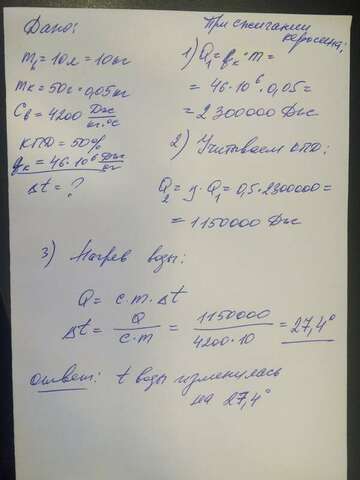 Дано:
m₁=10л=10кг
mк=50г=0,05кг
Cв=4200 Дж/кг·°С
КПД=50%
qк=46·10⁶ Дж/кг
Δt=?
При сжигании керосина:
1) Q₁=qк·m=
=46·10⁶·0,05=
=2300000 Дж
2) Учитываем КПД:
Q₂=η·Q₁=0,5·2300000=
=1150000 Дж
3) Нагрев воды:
Q=c·m·Δt
Δt=Q/c·m=1150000/4200·10=27,4°
Ответ: t воды изменилась
на 27,4°